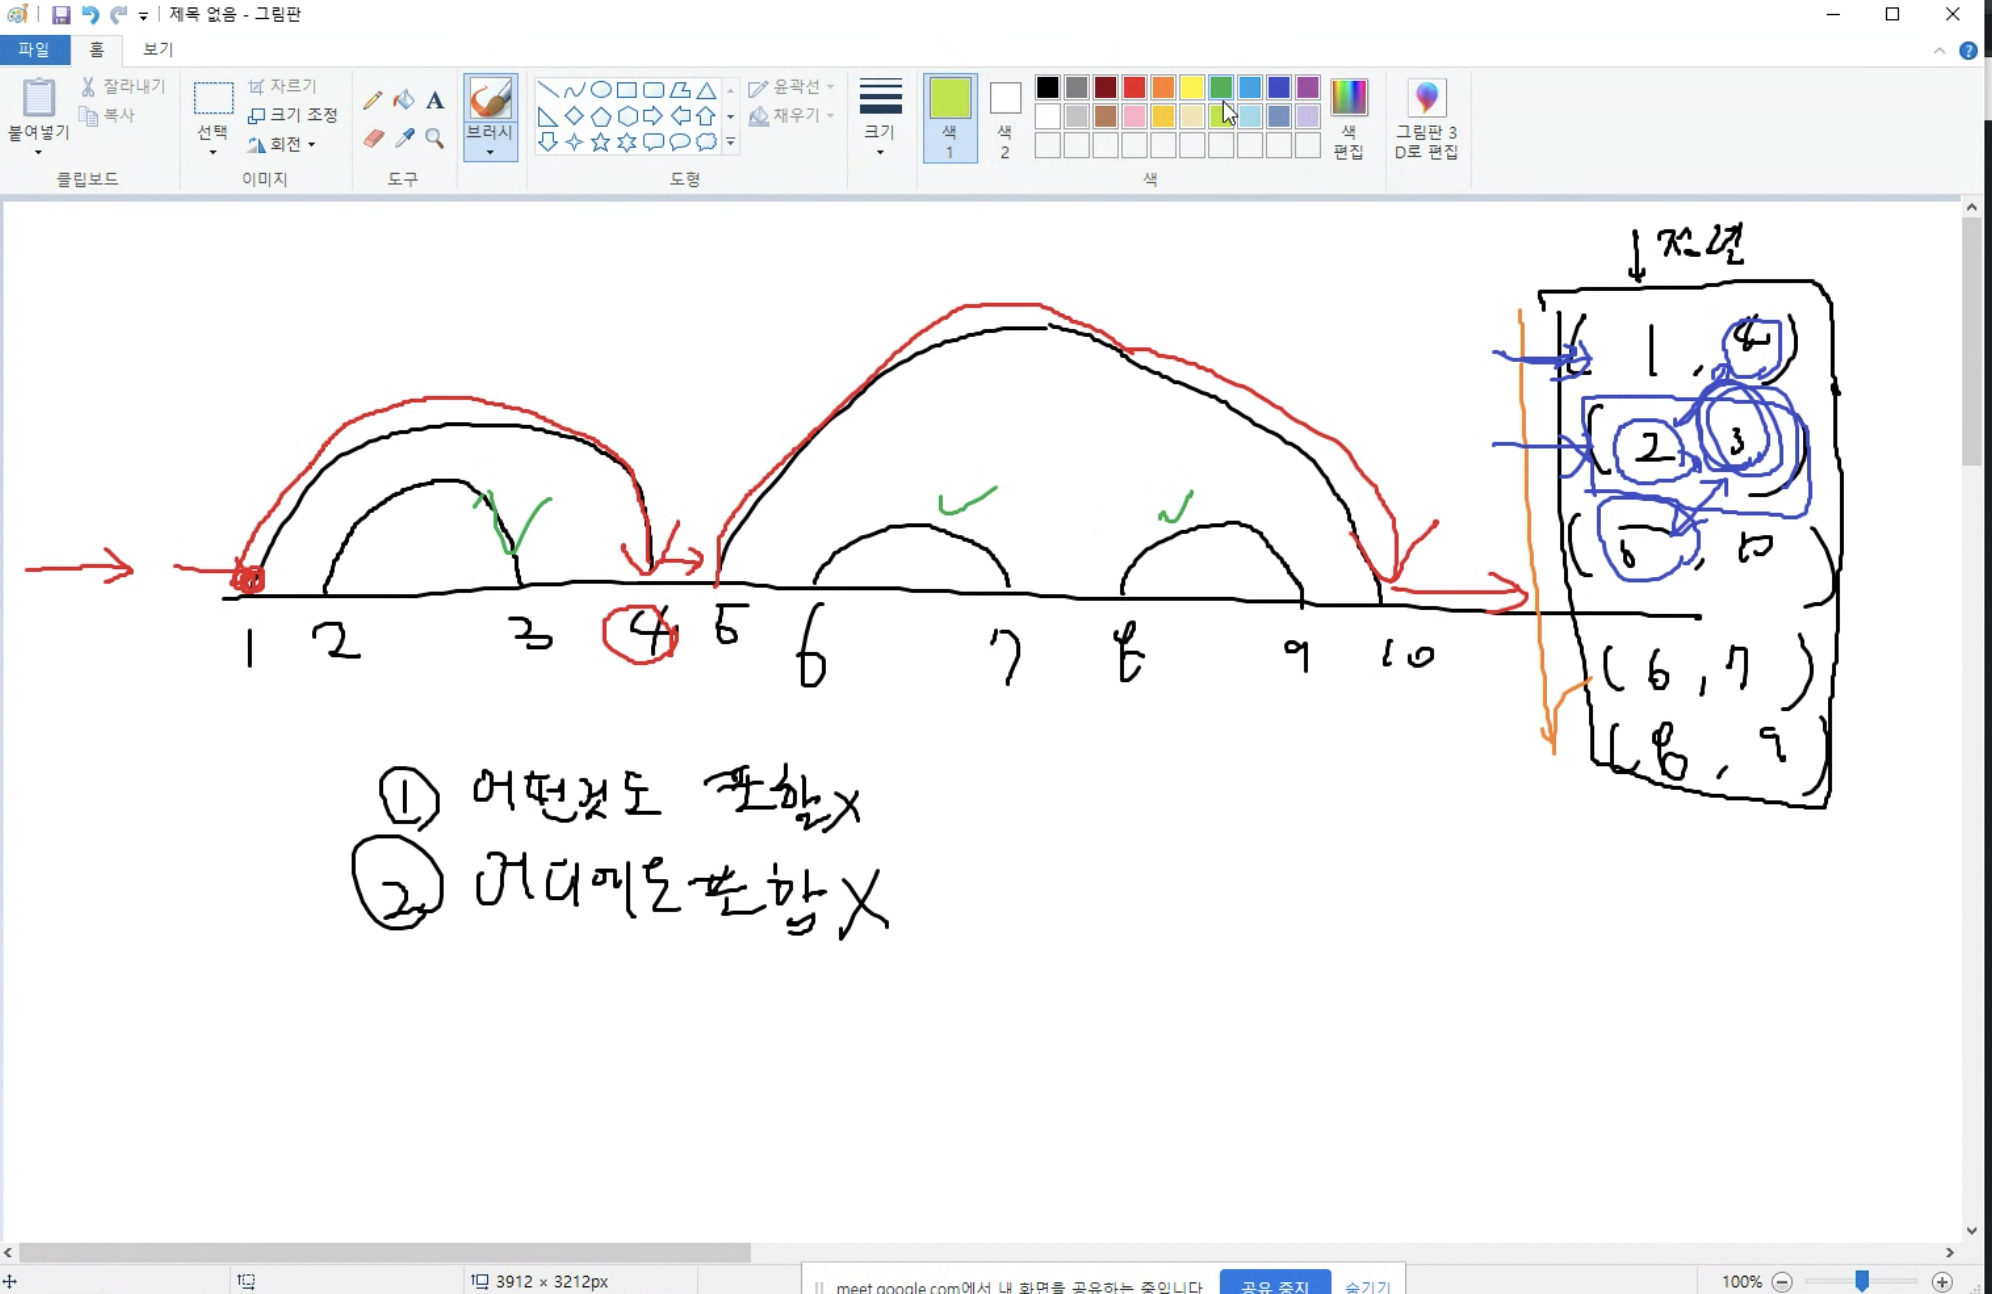 제목 없음 - 그림판
파일 홈 보기
붙여넣기
잘라내기
복사
클립보드
선택
자르기
크기 조정
회전
이미지
A
도구
브러시
윤곽선
채우기
도형
크기
색
1
색
2
색
편집
색
그림판 3
D로 편집
↓ 전년
(1, 4)
(2, 3)
(5, 10)
(6, 7)
(8, 9)
1 2 3 4 5 6 7 8 9 10
① 어떤것도 포함X
② 어디에도 포함X
3912 × 3212px
meet.google.com에서 내 화면을 공유하는 중입니다.
공유 중지
숨기기
100%